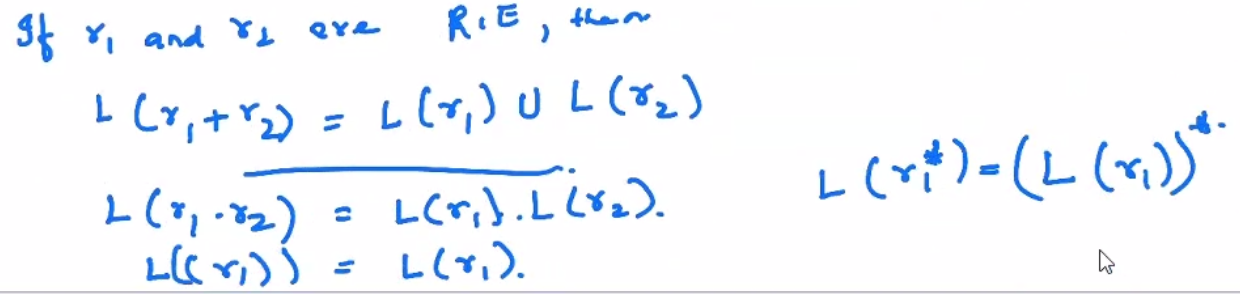 If r₁ and r₂ are R.E, then
L (r₁ + r₂) = L (r₁) ∪ L (r₂)
L (r₁ · r₂) = L(r₁) . L (r₂).
L((r₁)) = L (r₁).
L (r₁*) = (L (r₁))*.